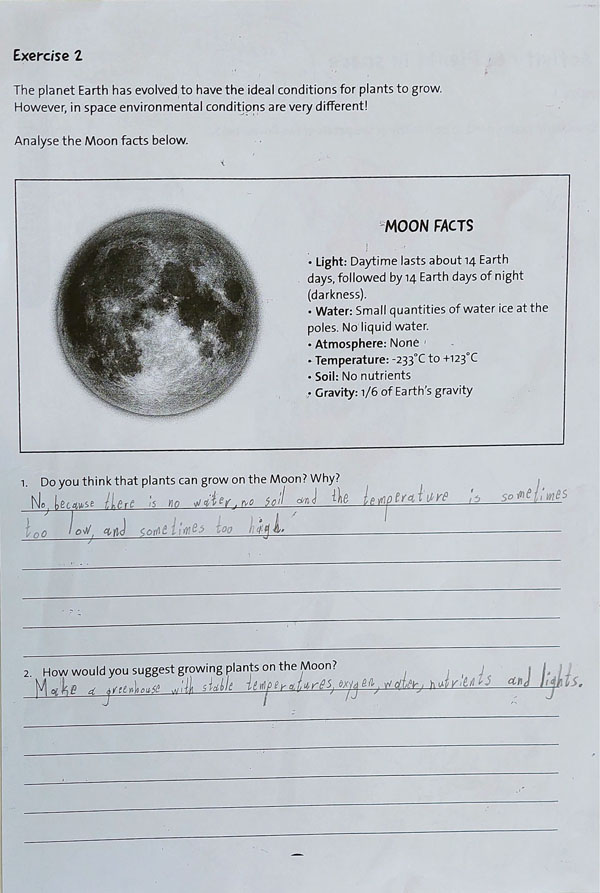 Exercise 2
The planet Earth has evolved to have the ideal conditions for plants to grow.
However, in space environmental conditions are very different!
Analyse the Moon facts below.
MOON FACTS
• Light: Daytime lasts about 14 Earth
days, followed by 14 Earth days of night
(darkness).
• Water: Small quantities of water ice at the
poles. No liquid water.
• Atmosphere: None
• Temperature: -233°C to +123°C
• Soil: No nutrients
• Gravity: 1/6 of Earth's gravity
1. Do you think that plants can grow on the Moon? Why?
No, because there is no water, no soil and the temperature is sometimes
too low, and sometimes too high.
2. How would you suggest growing plants on the Moon?
Make a greenhouse with stable temperatures, oxygen, water, nutrients and lights.